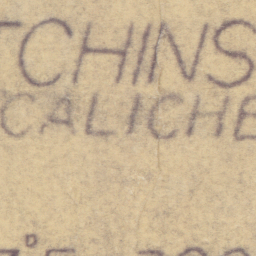 TCHINS
CALICHE